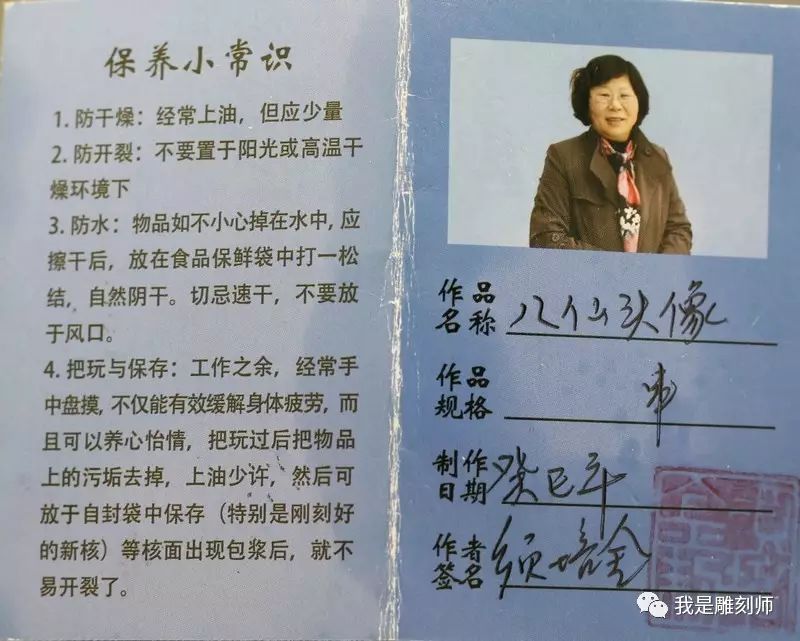 保养小常识
1. 防干燥：经常上油，但应少量
2. 防开裂：不要置于阳光或高温干
燥环境下
3. 防水：物品如不小心掉在水中，应
擦干后，放在食品保鲜袋中打一松
结，自然阴干。切忌速干，不要放
于风口。
4. 把玩与保存：工作之余，经常手
中盘摸，不仅能有效缓解身体疲劳，而
且可以养心怡情，把玩过后把物品
上的污垢去掉，上油少许，然后可
放于自封袋中保存（特别是刚刻好
的新核）等核面出现包浆后，就不
易开裂了。
作品名称 八仙头像
作品规格 串
制作日期 癸巳年
作者签名 须培金
我是雕刻师